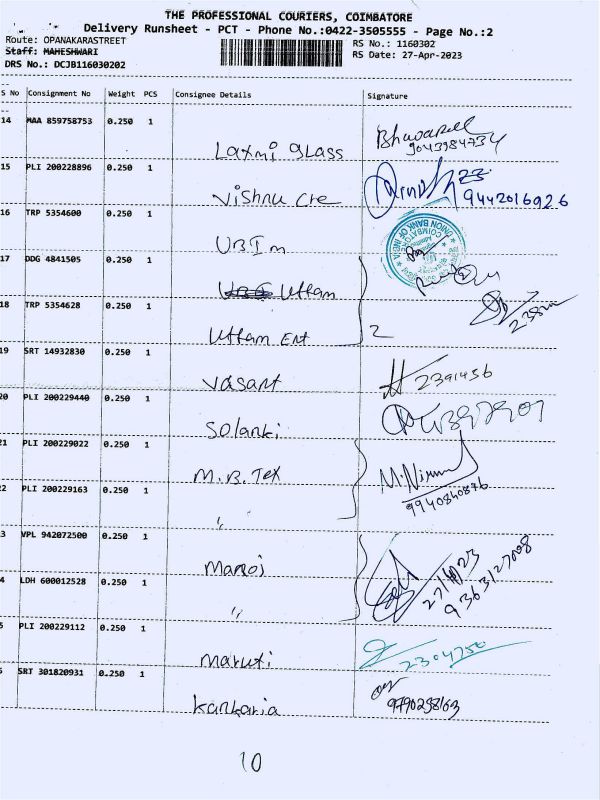 THE PROFESSIONAL COURIERS, COIMBATORE
Delivery Runsheet - PCT - Phone No.:0422-3505555 - Page No.:2
Route: OPANAKARASTREET
RS No.: 1160302
Staff: MAHESHWARI
RS Date: 27-Apr-2023
DRS No.: DCJB116030202
S No Consignment No Weight PCS Consignee Details Signature
14 MAA 859758753 0.250 1
Laxmi glass
9043984734
15 PLI 200228896 0.250 1
Vishnu Cre
23
9442016926
16 TRP 5354600 0.250 1
UBIm
UNION BANK OF INDIA
COIMBATORE
17 DDG 4841505 0.250 1
Uttam
18 TRP 5354628 0.250 1
Uttam Ent 2
19 SRT 14932830 0.250 1
Vasant
2391456
20 PLI 200229440 0.250 1
Solanki
21 PLI 200229022 0.250 1
M.B.Tex
M.Nirmal
2 PLI 200229163 0.250 1
9940840876
"
3 VPL 942072500 0.250 1
Manoj
27/4/23
9363127008
4 LDH 600012528 0.250 1
"
5 PLI 200229112 0.250 1
Maruti
2304750
SRT 301820931 0.250 1
Kankaria
9790298163
10